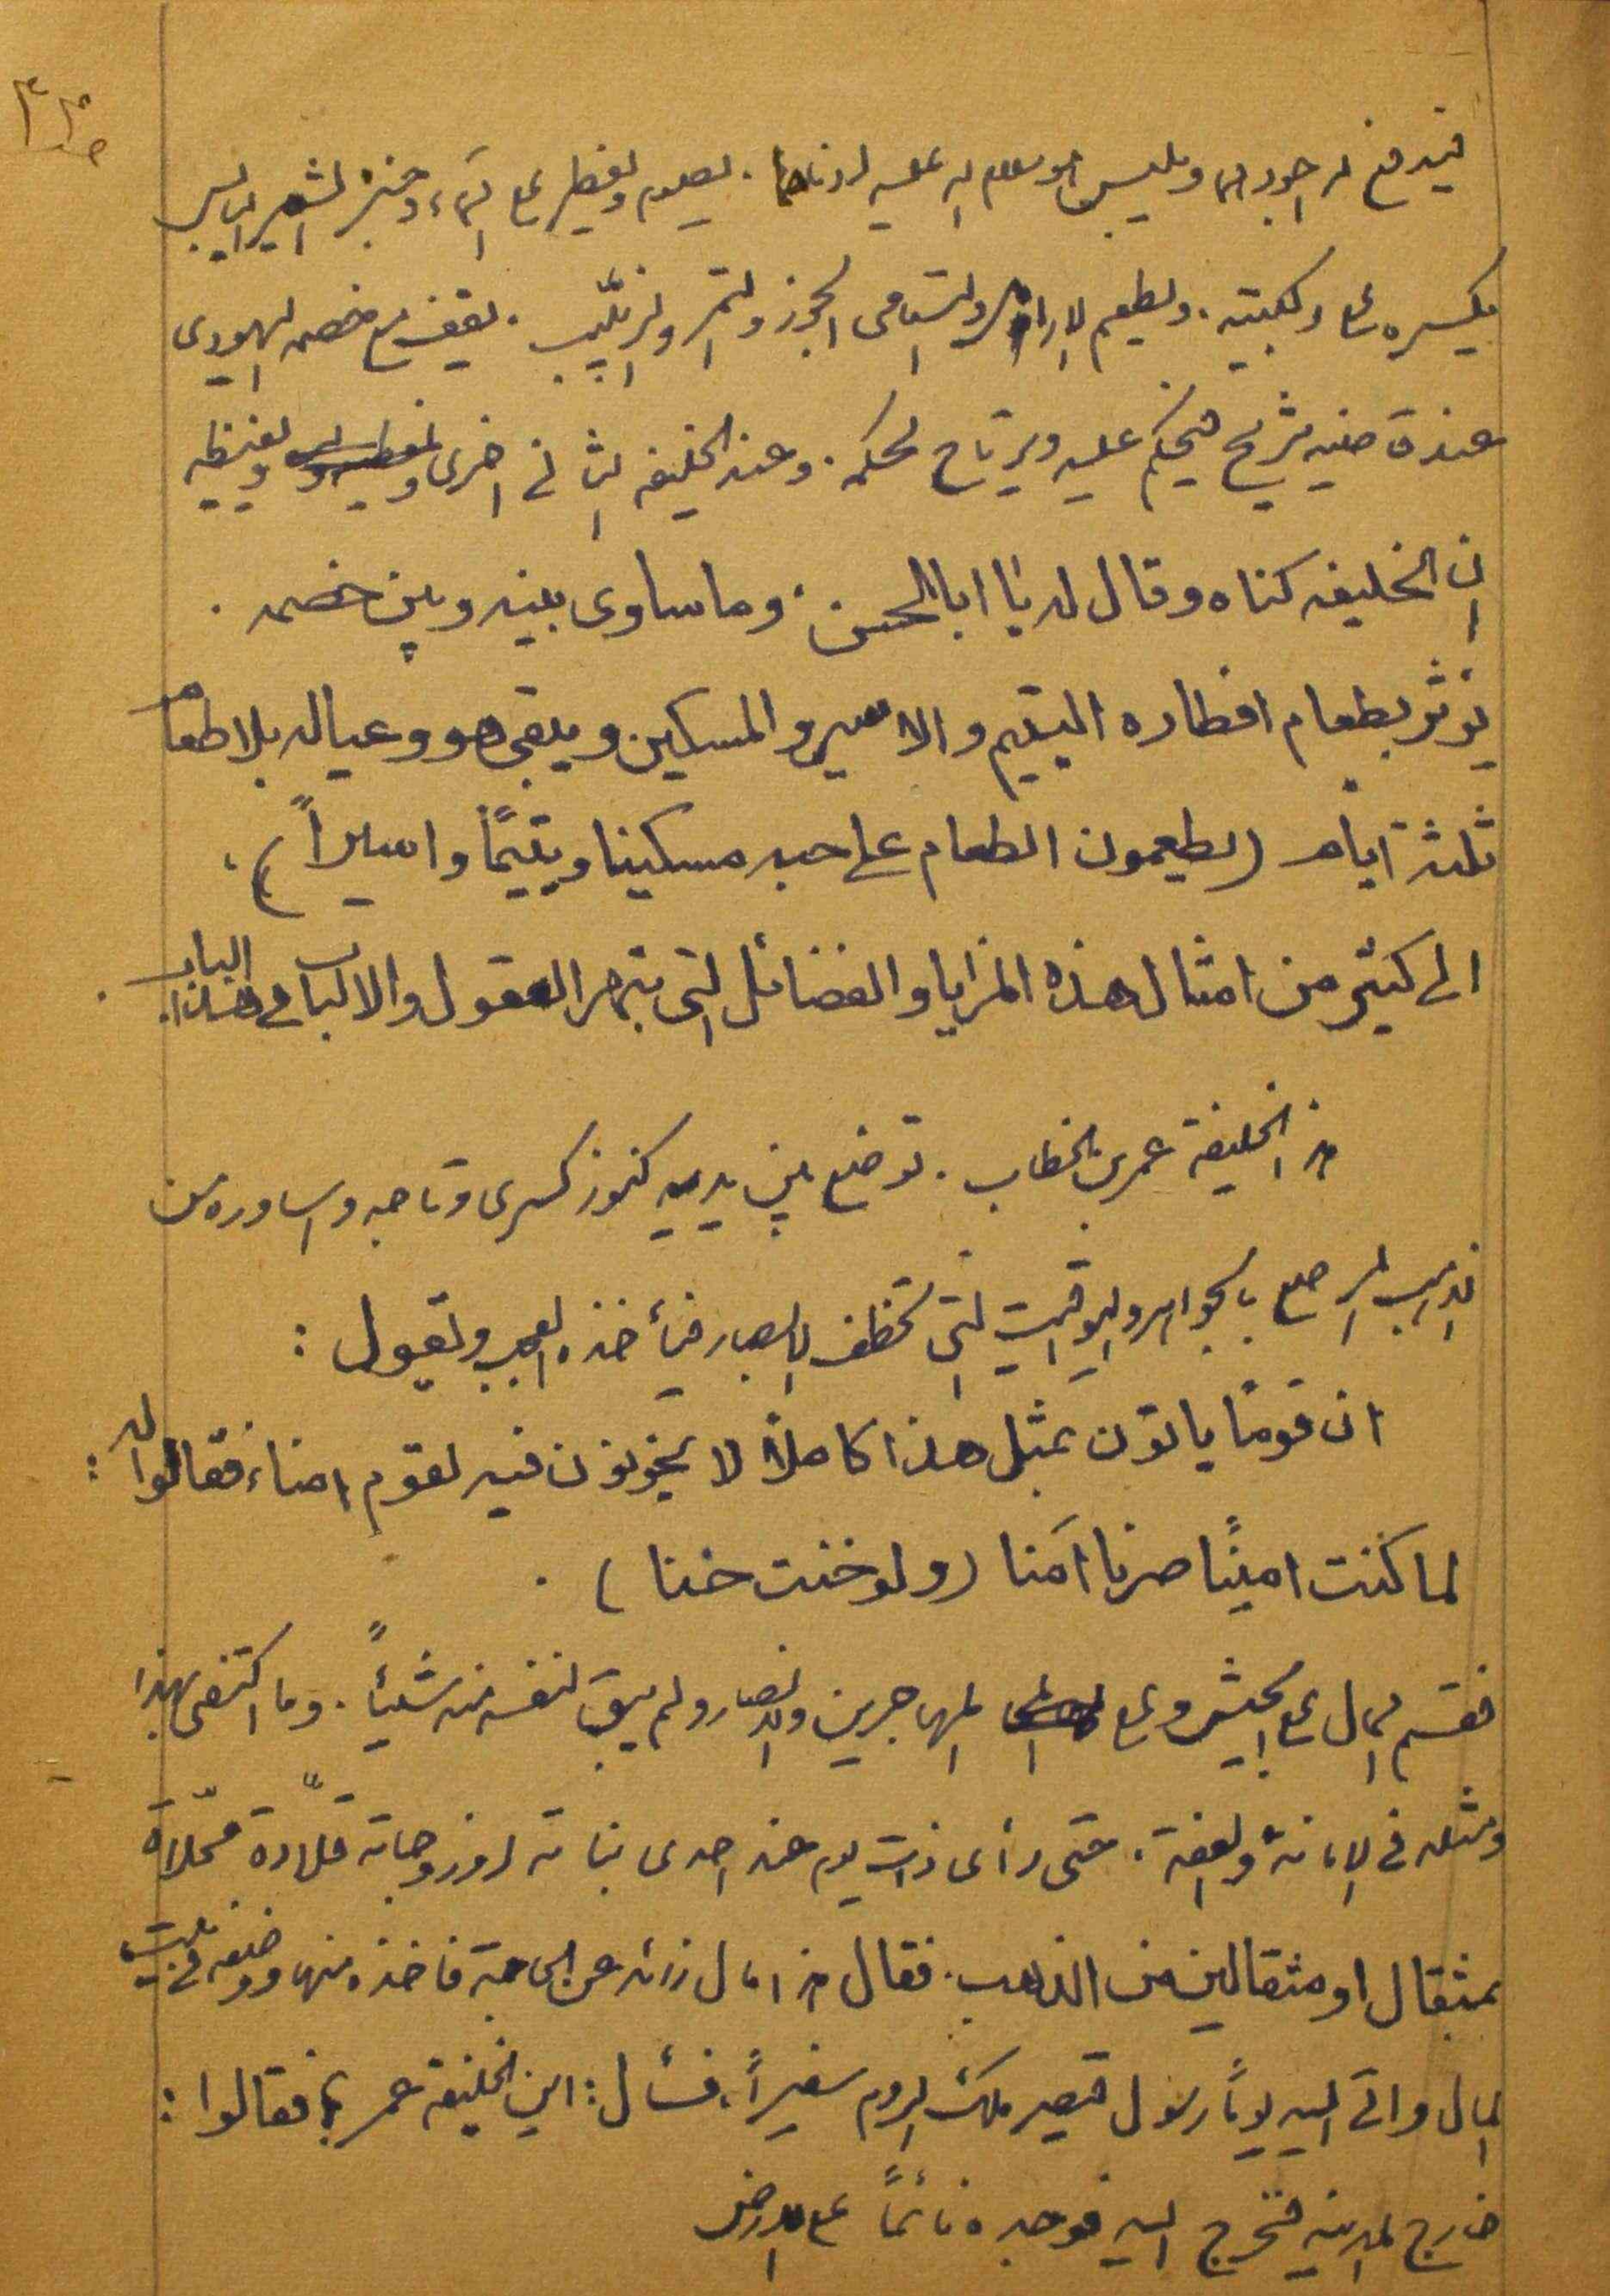 فيدفع له اجودهما ويلبس هو سلام الله عليه ادناهما. يصوم ويفطر على الماء وخبز الشعير اليابس
يكسره على ركبتيه. ويطعم الارامل واليتامى الجوز والتمر والزبيب. يقف مع خصمه اليهودي
عند قاضيه شريح فيحكم عليه ويرتاح لحكمه. وعند الخليفه الثاني اخرى ويغيظه
ان الخليفه كناه وقال له يا ابا الحسن، وما ساوى بينه وبين خصمه.
يؤثر بطعام افطاره اليتيم والاسير والمسكين ويبقى هو وعياله بلا طعام
ثلثة ايام (يطعمون الطعام على حبه مسكينا ويتيمًا واسيراً).
الى كثير من امثال هذه المزايا والفضائل التي تبهر العقول والالباب في هذا الباب.
هذا الخليفة عمر بن الخطاب. توضع بين يديه كنوز كسرى وتاجه واساوره من
الذهب المرصع بالجواهر واليواقيت التي تخطف الابصار فيأخذه العجب ويقول:
ان قومًا ياتون بمثل هذا كاملاً لا يخونون فيه لقوم امناء، فقالوا له:
لما كنت امينًا صرنا امنا (ولو خنت خنا).
فقسم المال على الجيش وعلى المهاجرين والانصار ولم يبق لنفسه منه شيئاً. وما اكتفى بهذا
ومثله في الامانة والعفة. حتى رأى ذات يوم عند احدى بناته او زوجاته قلادة محلاة
بمثقال او مثقالين من الذهب. فقال هذا مال زائد عن الحاجة فاخذه منها ووضعه في بيت
المال واتى اليه يوماً رسول قيصر ملك الروم سفيراً، فسأل: اين الخليفة عمر؟ فقالوا:
خارج المدينه فخرج اليه فوجده نائماً على الارض